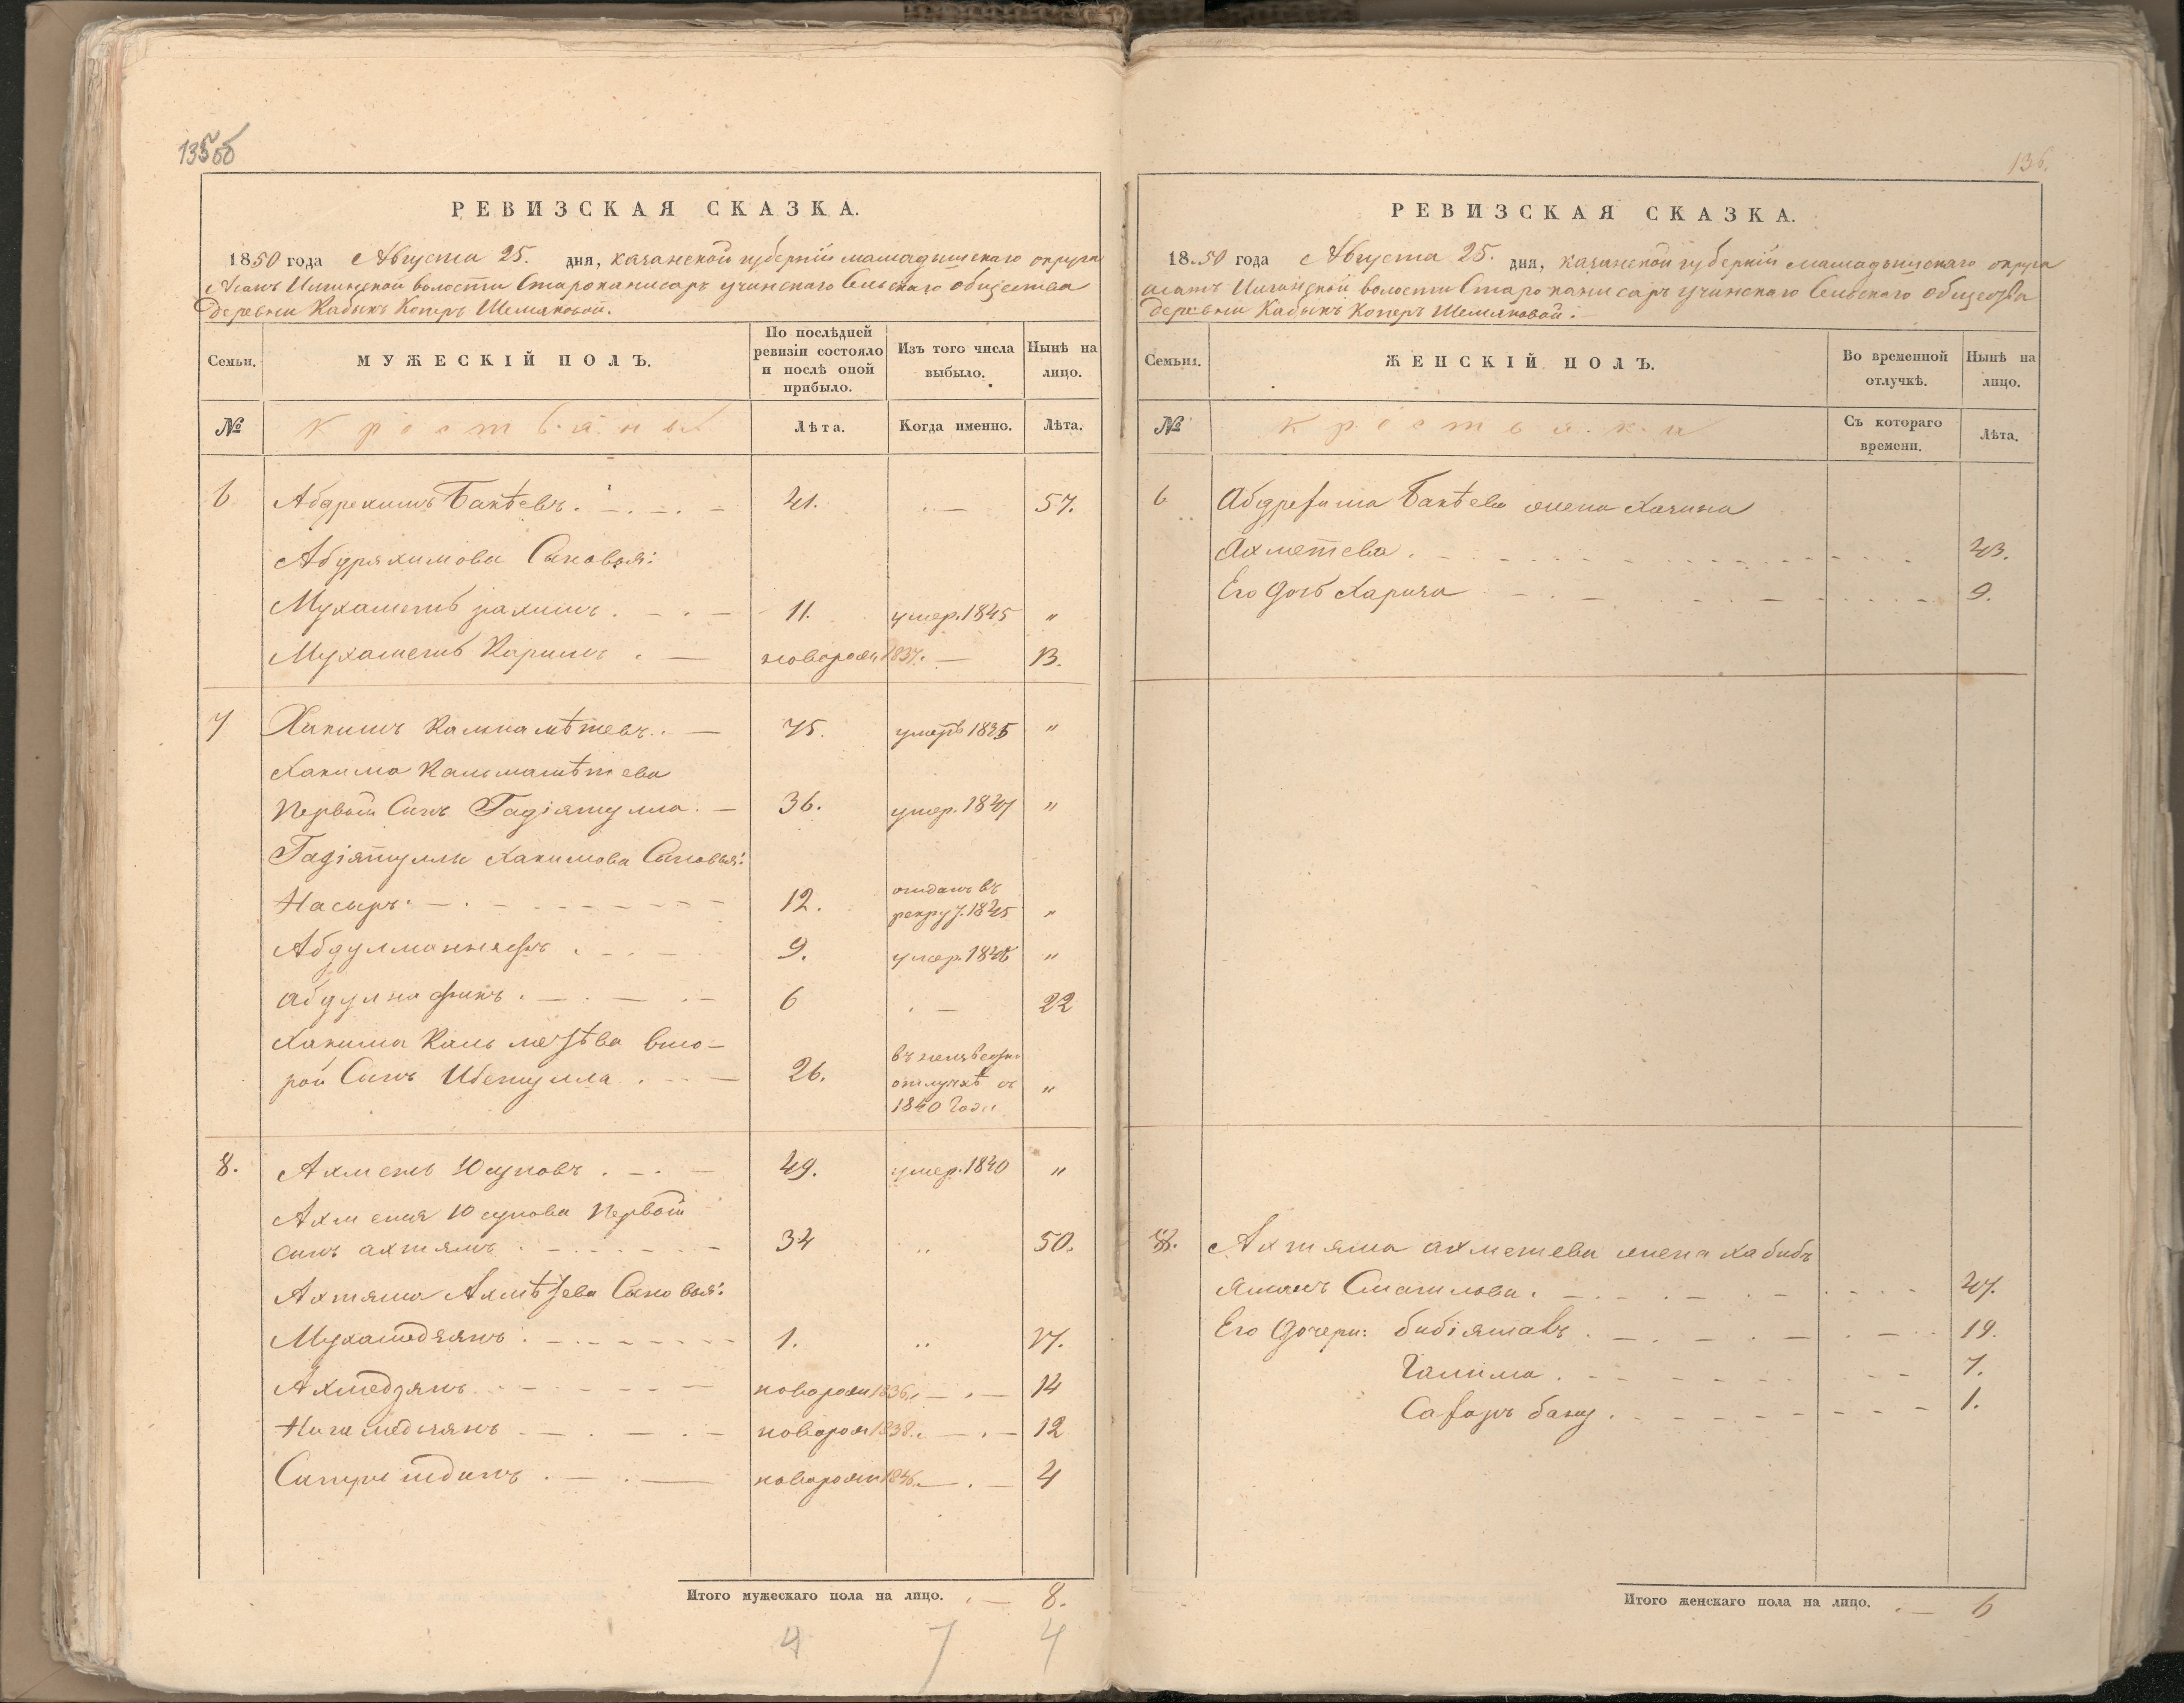 135об
РЕВИЗСКАЯ СКАЗКА.
1850 года Августа 25. дня, казанской губерніи мамадышскаго округа
Асанъ Илгинской волости Староканисаръ учинскаго Сельскаго общества
деревни Кабыкъ Коперъ Шемяковой.
Семьи.
МУЖЕСКІЙ ПОЛЪ.
По послѣдней ревизіи состояло и послѣ оной прибыло.
Изъ того числа выбыло.
Нынѣ на лицо.
№
крестьяны
Лѣта.
Когда именно.
Лѣта.
6 Абдрекимъ Бакѣевъ. 41. 57.
Абдряхимова Сыновья:
Мухаметь рахимъ. 11. умер. 1845 "
Мухаметь Каримъ. новорож. 1837. 13.
7 Хакимъ Калмаметевъ. 75. умеръ 1835 "
Хакима Кальмаметева
Первый Сынъ Гадіятулла. 36. умер. 1847 "
Гадіятуллы Хакимова Сыновья:
Насыръ. 12. отданъ въ
рекрут. 1845 "
9. умер. 1846 "
Абдулнафикъ. 6 22
Хакима Кальметева вто-
рой Сынъ Ибетулла. 26. въ неизвестно
отлучкѣ съ "
1840 года
8. Ахметь Юсуповъ. 49. умер. 1840 "
Ахметя Юсупова Первый
сынъ ахтямъ. 34 50.
Ахтяма Ахмѣтева Сыновья:
Мухамедзянъ. 1. 17.
Ахмедзянъ новорож 1836. 14
Нигамедзянъ новорож 1838. 12
новорож 1846. 4
Итого мужескаго пола на лицо. 8.
4 7 4
136.
РЕВИЗСКАЯ СКАЗКА.
1850 года Августа 25. дня, казанской губерніи мамадышскаго округа
асанъ Илгинской волости Староканисаръ учинскаго Сельскаго общества
деревни Кабыкъ Коперъ Шемяковой.
Семьи.
ЖЕНСКІЙ ПОЛЪ.
Во временной отлучкѣ.
Нынѣ на лицо.
№
крестьянки
Съ котораго времени.
Лѣта.
6 Бакѣева жена
Ахметева. 43.
Его дочь 9.
8. Ахтяма ахметева жена хабибъ
Ямалъ Смагилова. 47.
Его дочери: бибіямавъ. 19.
Галима. 7.
Сафаръ бану. 1.
Итого женскаго пола на лицо. 6